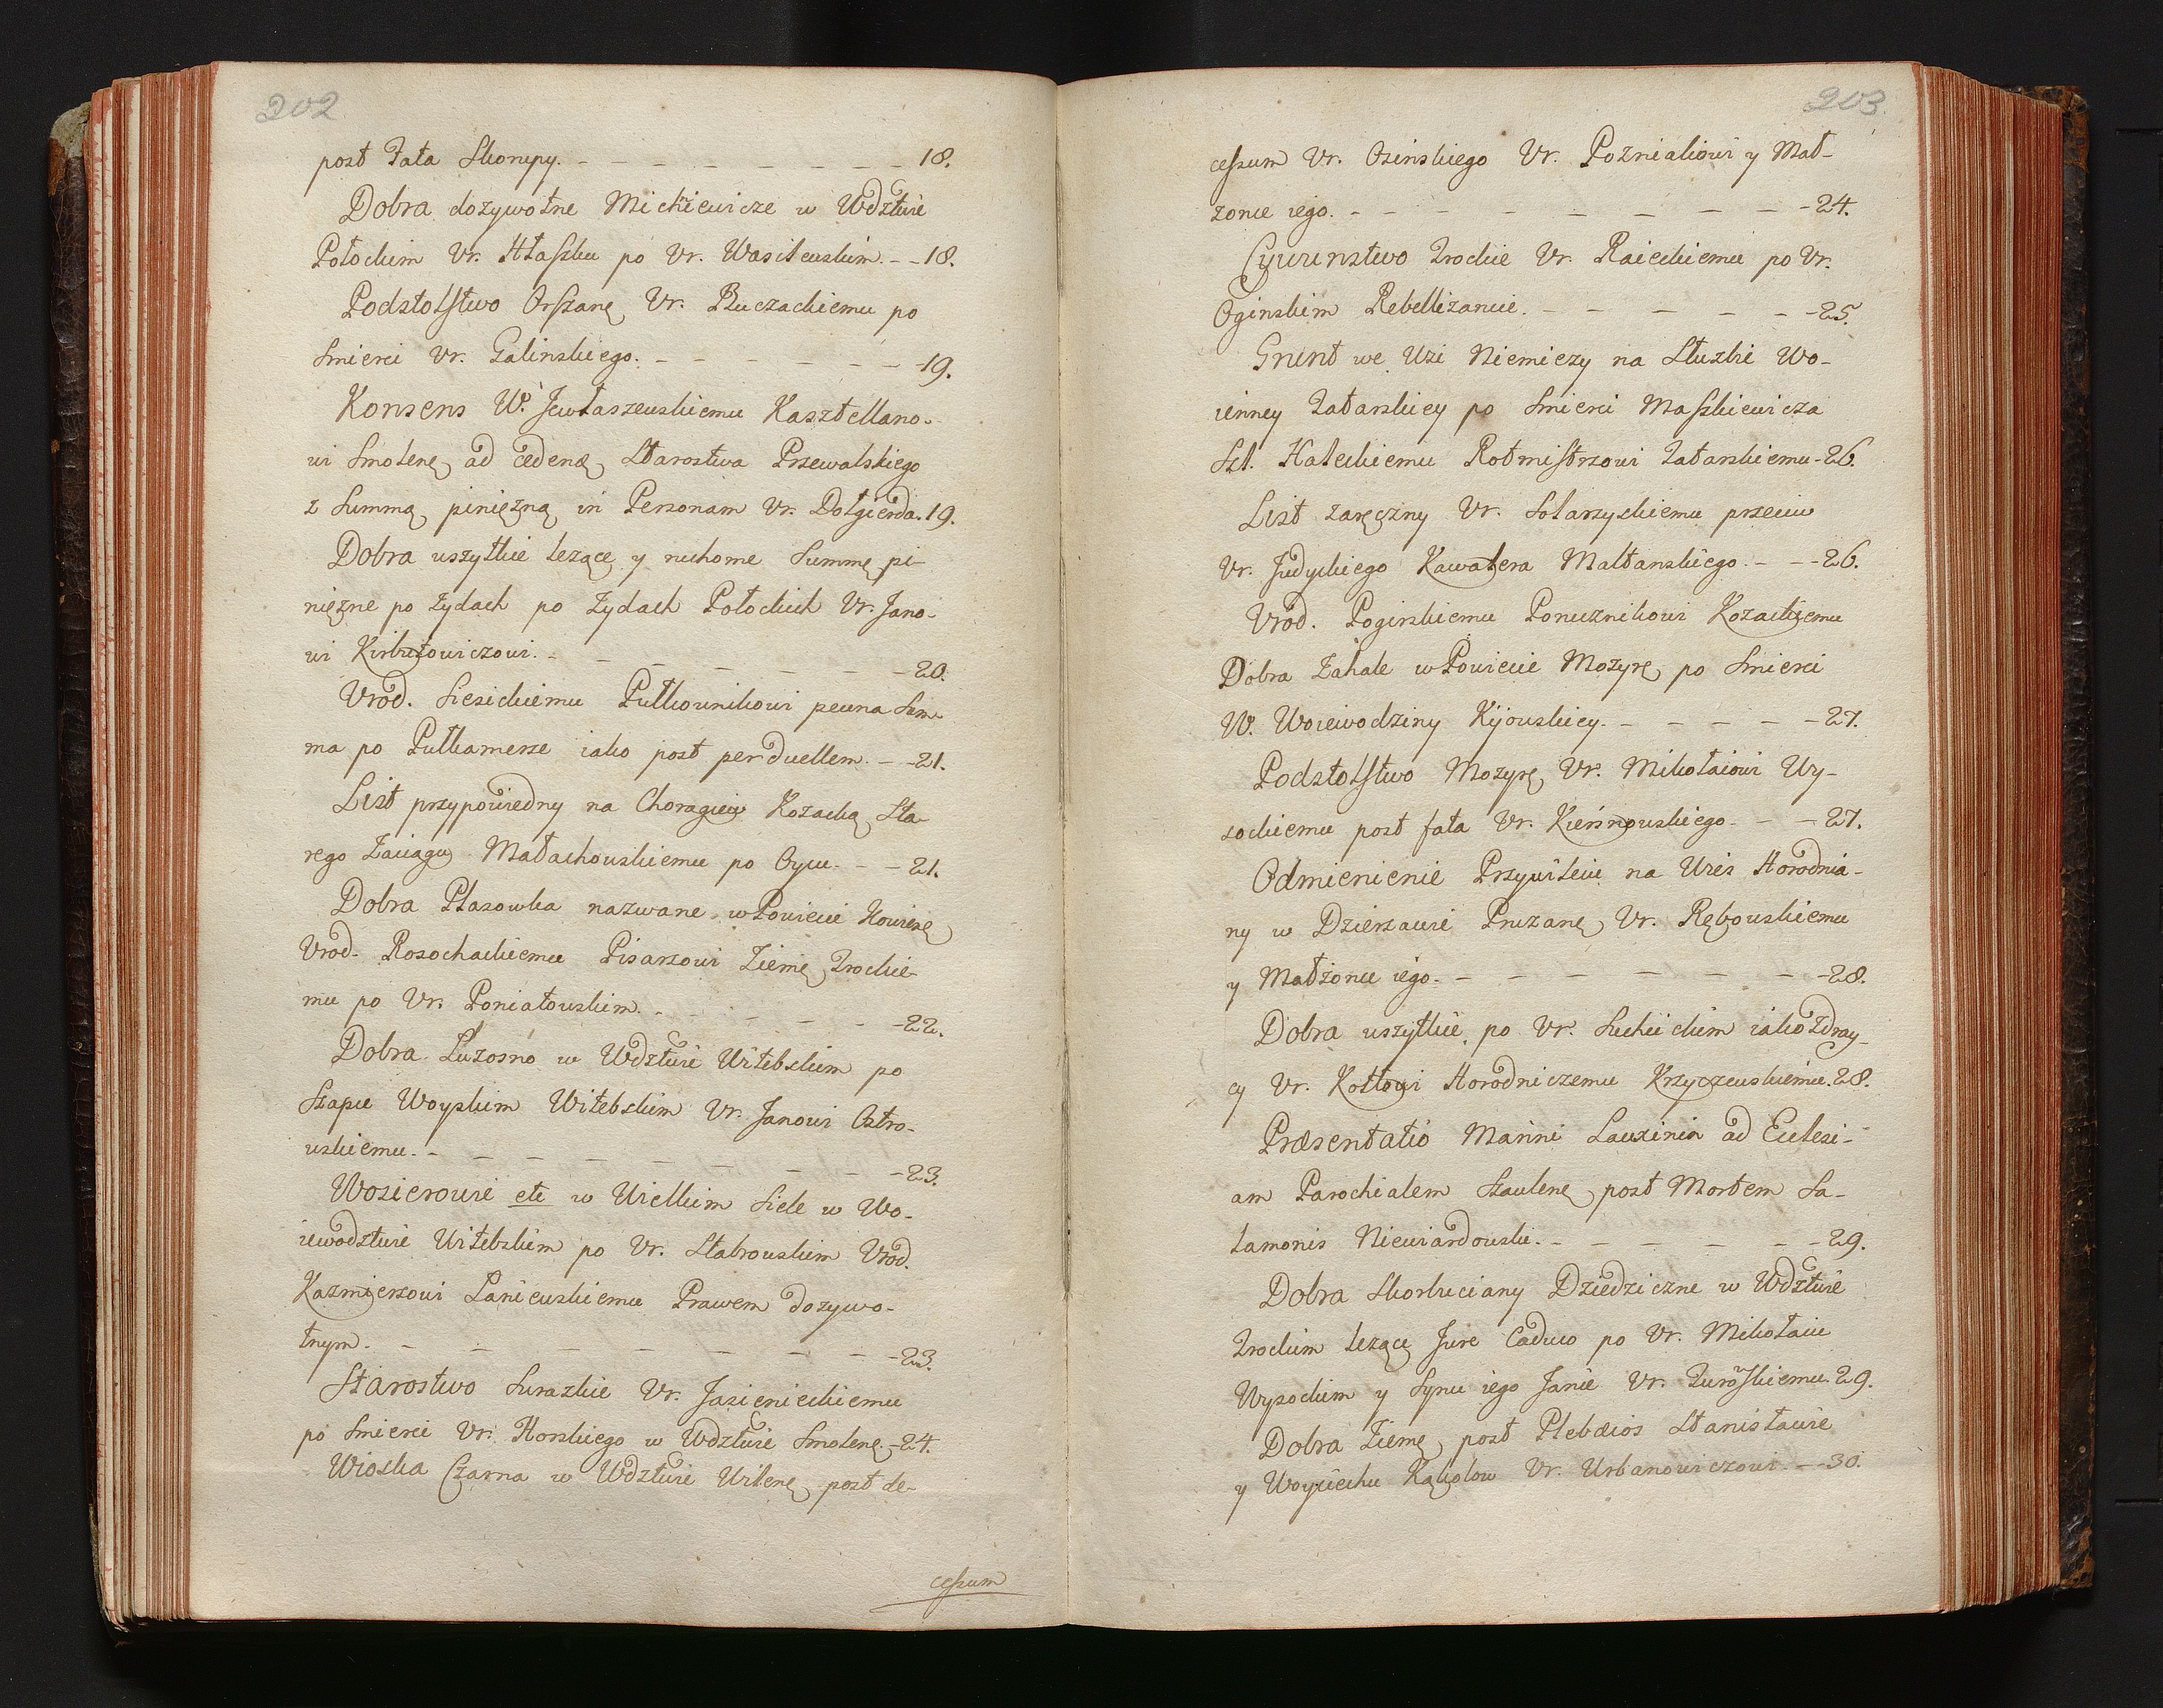 202
post Fata Skorupy. - - - - - - - 18.
Dobra dozywotne Michiewicze w Wdztwie
Połockim Vr. Hłaszku po Vr. Wasilewskim. - - 18.
Podstolstwo Orszanę Vr. Buczackiemu po
Smierci Vr. Galinskiego. - - - - - - 19.
Konsens W. Jewłaszewskiemu Kasztellano-
wi Smolenę ad cedenę Starostwa Przewalskiego
z Summą pinięzną in Personam Vr. Dołgierda. 19.
Dobra wszytkie lezące y ruchome Summę pi-
nięzne po Zydach po Zydach Połockich Vr. Jano-
wi Kirbutowiczowi. - - - - - - 20.
Vrod. Siesickiemu Pułkownikowi pewna Sum-
ma po Putkamerze iako post perduellem. - - 21.
List przypowiedny na Choragiew Kozacką Sta-
rego Zaciagu Małachowskiemu po Oycu. - - 21.
Dobra Płasowka nazwane w Powiecie Kowienę
Vrod. Rosochackiemu Pisarzowi Ziemę Trockie-
mu po Vr. Poniatowskim. - - - - - 22.
Dobra Łuzosno w Wdztwie Witebskim po
Szapce Woyskim Witebskim Vr. Janowi Ostro-
wskiemu. - - - - - - - - 23.
Wozierowie etc w Wielkim Siele w Wo-
iewodztwie Witebskim po Vr. Stabrowskim Vrod.
Kazmierzowi Laniewskiemu Prawem dozywo-
tnym. - - - - - - - - 23.
Starostwo Surazkie Vr. Jasienieckiemu
po Smierci Vr. Horskiego w Wdztwie Smolenę. - 24.
Wioska Czarna w Wdztwie Wilenę post de-
cessum
203.
cessum Vr. Osinskiego Vr. Pozniakowi y Mał-
zonce iego. - - - - - - - - 24.
Cywunstwo Trockie Vr. Raieckiemu po Vr.
Oginskim Rebellizancie. - - - - - 25.
Grunt we Wsi Niemiezy na Służbie Wo-
ienney Tatarskiey po Smierci Maszkiewicza
Szl. Haleckiemu Rotmistrzowi Tatarskiemu - 26.
List zaręczny Vr. Solarzyckiemu przeciw
Vr. Judyckiego Kawalera Maltanskiego. - - - 26.
Vrod. Pogirskiemu Porucznikowi Kozackiemu
Dobra Zahale w Powiecie Mozyrę po Smierci
W. Woiewodziny Kijowskiey. - - - - - 27.
Podstolstwo Mozyrę Vr. Mikołaiowi Wy-
sockiemu post fata Vr. Kiersnowskiego. - - 27.
Odmienienie Przywileiu na Wieś Horodnia-
ny w Dzierzawie Pruzanę Vr. Rębowskiemu
y Małżonce iego. - - - - - - - 28.
Dobra wszytkie po Vr. Suchickim iako Zdray-
cy Vr. Kottowi Horodniczemu Krzyczewskiemu. 28.
Præsentatio Marini Lauxinia ad Ecclesi-
am Parochialem Szaulenę post Mortem Sa-
lamonis Niewiardowski. - - - - - 29.
Dobra Skorbuciany Dziedziczne w Wdztwie
Trockim lezące Jure Caduco po Vr. Mikołaiu
Wysockim y Synu iego Janie Vr. Turowskiemu. 29.
Dobra Ziemę post Plebeios Stanisławie
y Woyciechu Kąkolow Vr. Urbanowiczowi. - - 30.